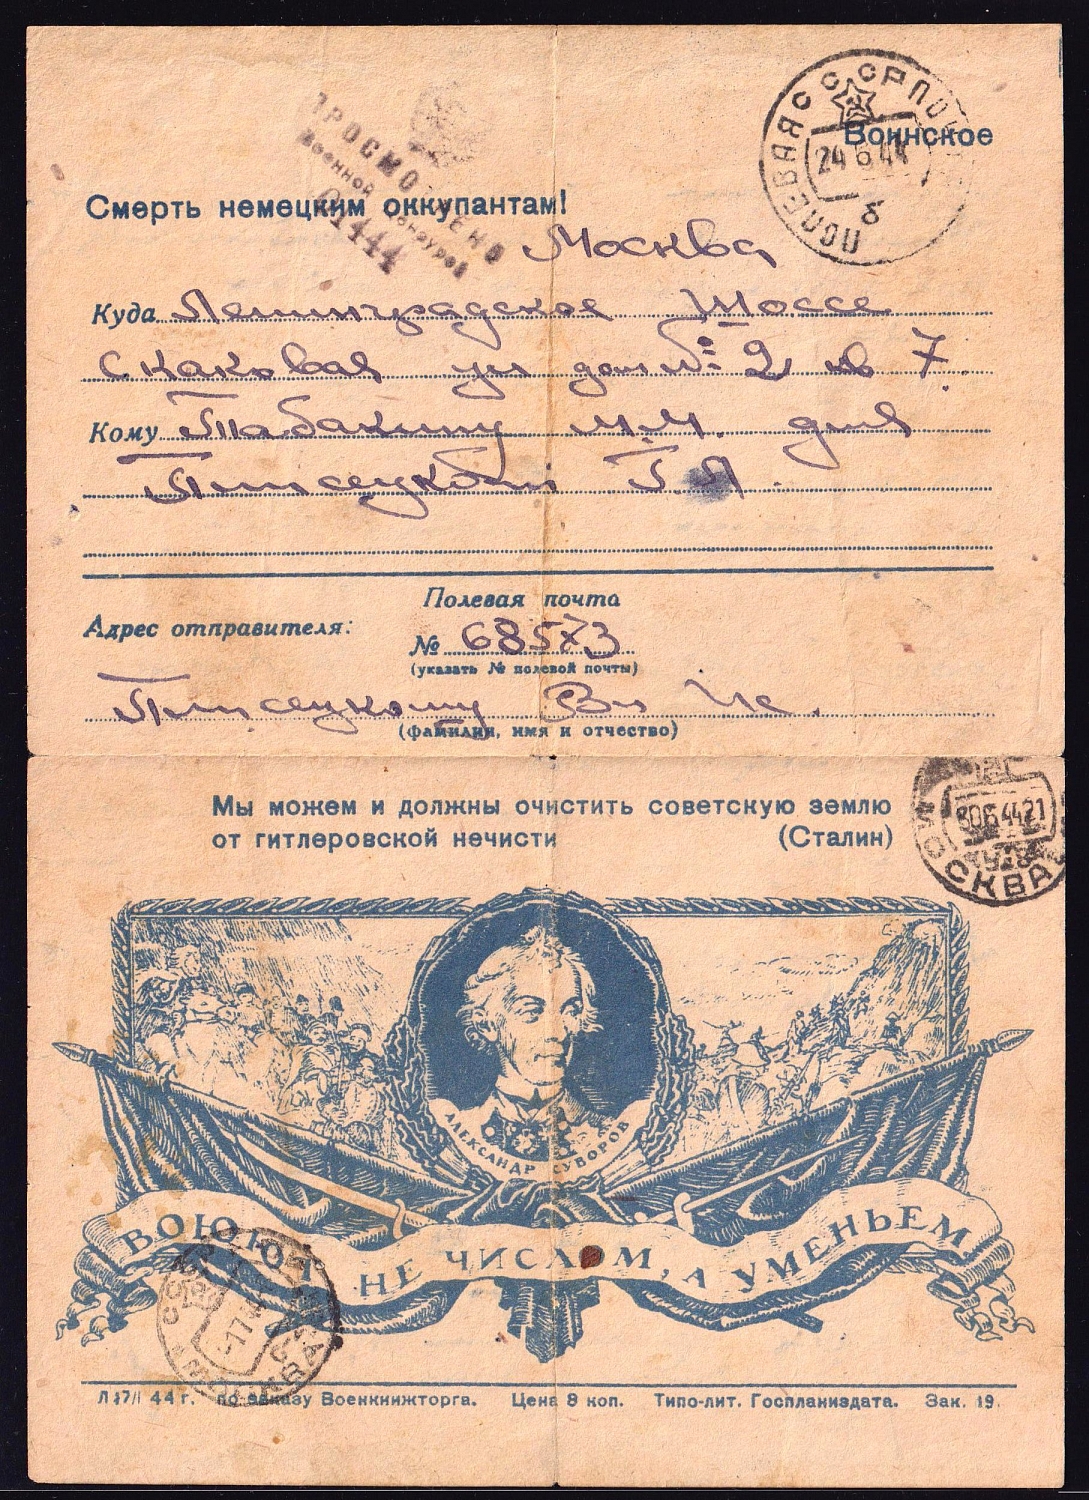 ПОЛЕВАЯ
СССР
24 6 44
б
Воинское
ПРОСМОТРЕНО
Военной Цензурой
01444
Смерть немецким оккупантам!
Москва
Куда Ленинградское Шоссе
Скаковая ул дом №: 2 кв 7.
Кому Табакину М.М. для
Плисецкой Г. Л.
Полевая почта
Адрес отправителя:
№ 68573
(указать № полевой почты)
Плисецкому
(фамилия, имя и отчество)
МОСКВА
30 6 44 21
Мы можем и должны очистить советскую землю
от гитлеровской нечисти (Сталин)
АЛЕКСАНДР СУВОРОВ
ВОЮЮТ НЕ ЧИСЛОМ, А УМЕНЬЕМ
МОСКВА
-1 7 44
44 г. по заказу Военкнижторга. Цена 8 коп. Типо-лит. Госпланиздата. Зак. 19.